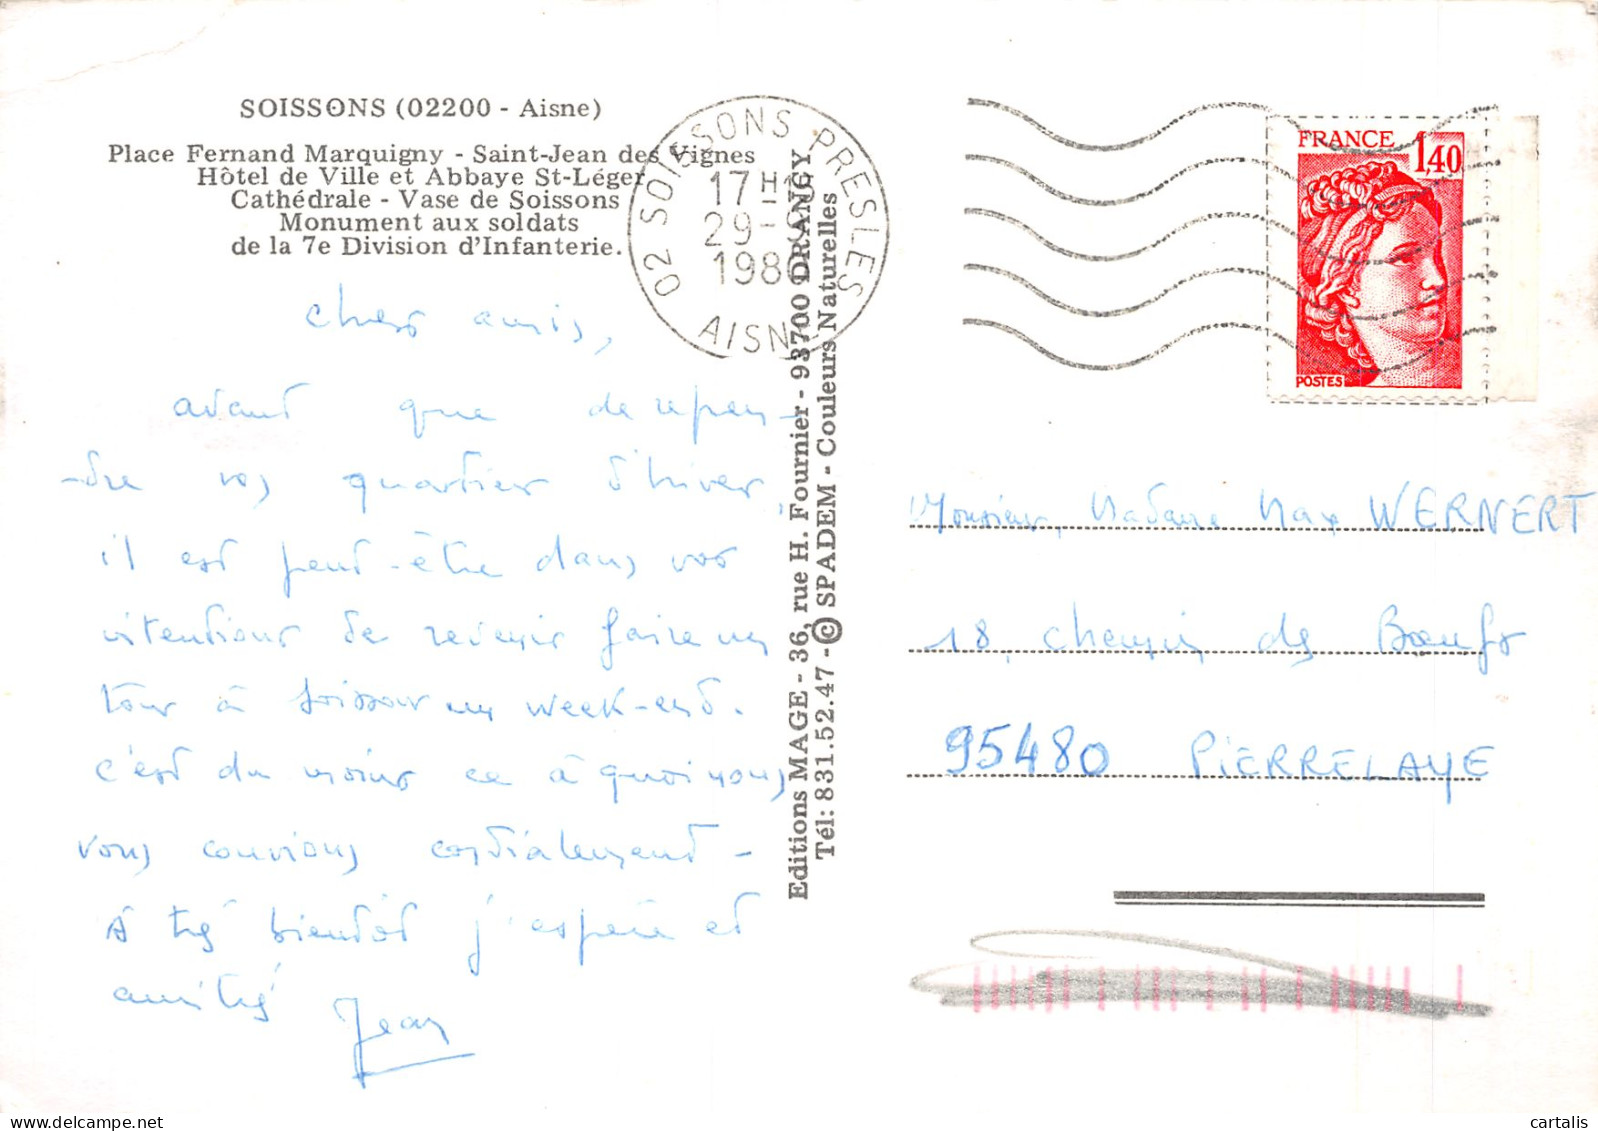 SOISSONS (02200 - Aisne)
Place Fernand Marquigny - Saint-Jean des Vignes
Hôtel de Ville et Abbaye St-Léger
Cathédrale - Vase de Soissons
Monument aux soldats
de la 7e Division d'Infanterie.
chers amis,
avant que de repren-
-dre vos quartier d'hiver,
il est peut-être dans vos
intentions de revenir faire un
tour à Soissons un week-end.
c'est du moins ce à quoi nous
vous convions cordialement -
A très bientôt j'espère et
amitiés
Jean
02 SOISSONS PRESLES
17 H
29-
198
AISNE
Editions MAGE - 36, rue H. Fournier - 93700 DRANCY
Tél: 831.52.47 - © SPADEM - Couleurs Naturelles
FRANCE
1,40
POSTES
Monsieur, Madame Max WERNERT
18, chemin des Bœufs
95480 PIERRELAYE
cartalis